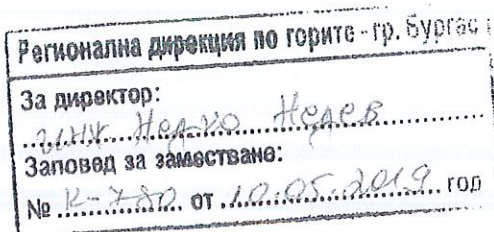 Регионална дирекция по горите - гр. Бургас
За директор:
инж. Недко Недев
Заповед за заместване:
№ К-780 от 10.05.2019 год